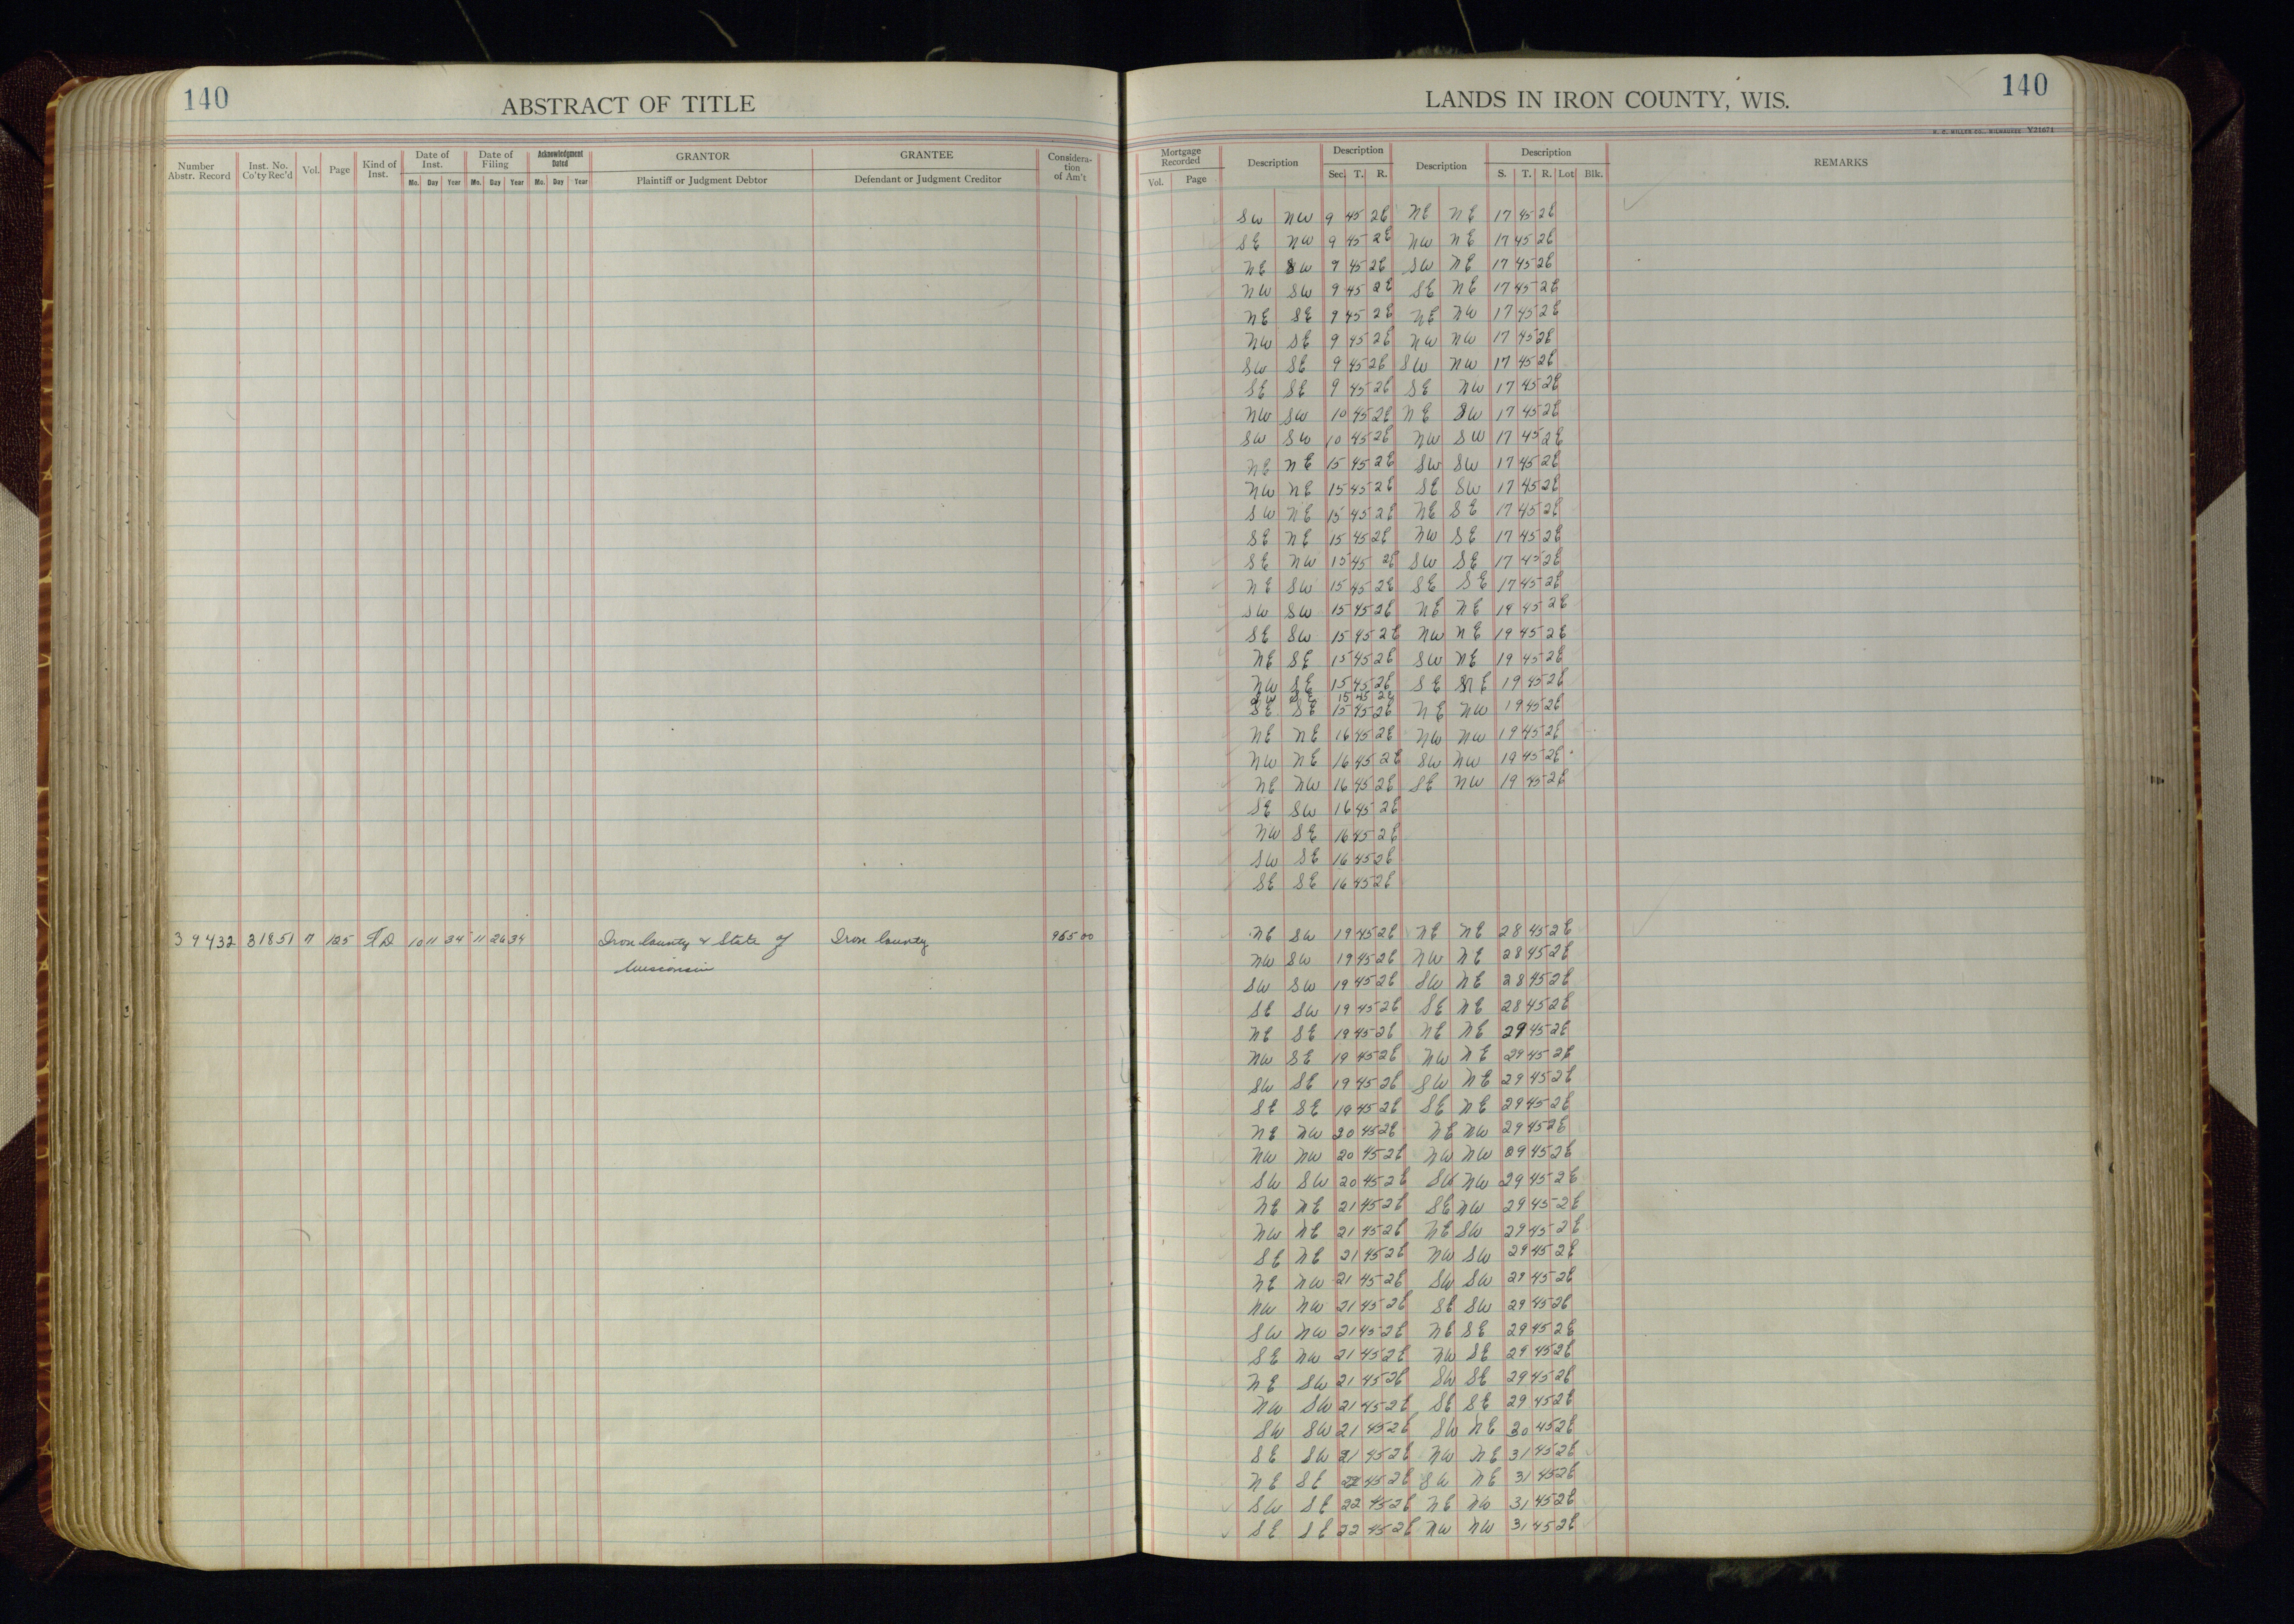 140
ABSTRACT OF TITLE
Number Abstr. Record | Inst. No. Co'ty Rec'd | Vol. | Page | Kind of Inst. | Date of Inst. Mo. Day Year | Date of Filing Mo. Day Year | Acknowledgment Dated Mo. Day Year | GRANTOR Plaintiff or Judgment Debtor | GRANTEE Defendant or Judgment Creditor | Considera-tion of Am't
39432 31851 7 125 TD 10 11 34 11 26 34 Iron County & State of Iron County 965 00
Wisconsin
LANDS IN IRON COUNTY, WIS.
140
H. C. MILLER CO., MILWAUKEE Y21671
Mortgage Recorded Vol. Page | Description | Description Sec. T. R. | Description | Description S. T. R. Lot Blk. | REMARKS
SW NW 9 45 2E NE NE 17 45 2E
SE NW 9 45 2E NW NE 17 45 2E
NE SW 9 45 2E SW NE 17 45 2E
NW SW 9 45 2E SE NE 17 45 2E
NE SE 9 45 2E NE NW 17 45 2E
NW SE 9 45 2E NW NW 17 45 2E
SW SE 9 45 2E SW NW 17 45 2E
SE SE 9 45 2E SE NW 17 45 2E
NW SW 10 45 2E NE SW 17 45 2E
SW SW 10 45 2E NW SW 17 45 2E
NE NE 15 45 2E SW SW 17 45 2E
NW NE 15 45 2E SE SW 17 45 2E
SW NE 15 45 2E NE SE 17 45 2E
SE NE 15 45 2E NW SE 17 45 2E
SE NW 15 45 2E SW SE 17 45 2E
NE SW 15 45 2E SE SE 17 45 2E
SW SW 15 45 2E NE NE 19 45 2E
SE SW 15 45 2E NW NE 19 45 2E
NE SE 15 45 2E SW NE 19 45 2E
NW SE 15 45 2E SE NE 19 45 2E
SW SE 15 45 2E
SE SE 15 45 2E NE NW 19 45 2E
NE NE 16 45 2E NW NW 19 45 2E
NW NE 16 45 2E SW NW 19 45 2E
NE NW 16 45 2E SE NW 19 45 2E
SE SW 16 45 2E
NW SE 16 45 2E
SW SE 16 45 2E
SE SE 16 45 2E
NE SW 19 45 2E NE NE 28 45 2E
NW SW 19 45 2E NW NE 28 45 2E
SW SW 19 45 2E SW NE 28 45 2E
SE SW 19 45 2E SE NE 28 45 2E
NE SE 19 45 2E NE NE 29 45 2E
NW SE 19 45 2E NW NE 29 45 2E
SW SE 19 45 2E SW NE 29 45 2E
SE SE 19 45 2E SE NE 29 45 2E
NE NW 20 45 2E NE NW 29 45 2E
NW NW 20 45 2E NW NW 29 45 2E
SW SW 20 45 2E SW NW 29 45 2E
NE NE 21 45 2E SE NW 29 45 2E
NW NE 21 45 2E NE SW 29 45 2E
SE NE 21 45 2E NW SW 29 45 2E
NE NW 21 45 2E SW SW 29 45 2E
NW NW 21 45 2E SE SW 29 45 2E
SW NW 21 45 2E NE SE 29 45 2E
SE NW 21 45 2E NW SE 29 45 2E
NE SW 21 45 2E SW SE 29 45 2E
NW SW 21 45 2E SE SE 29 45 2E
SW SW 21 45 2E SW NE 30 45 2E
SE SW 21 45 2E NW NE 31 45 2E
NE SE 22 45 2E SW NE 31 45 2E
SW SE 22 45 2E NE NW 31 45 2E
SE SE 22 45 2E NW NW 31 45 2E